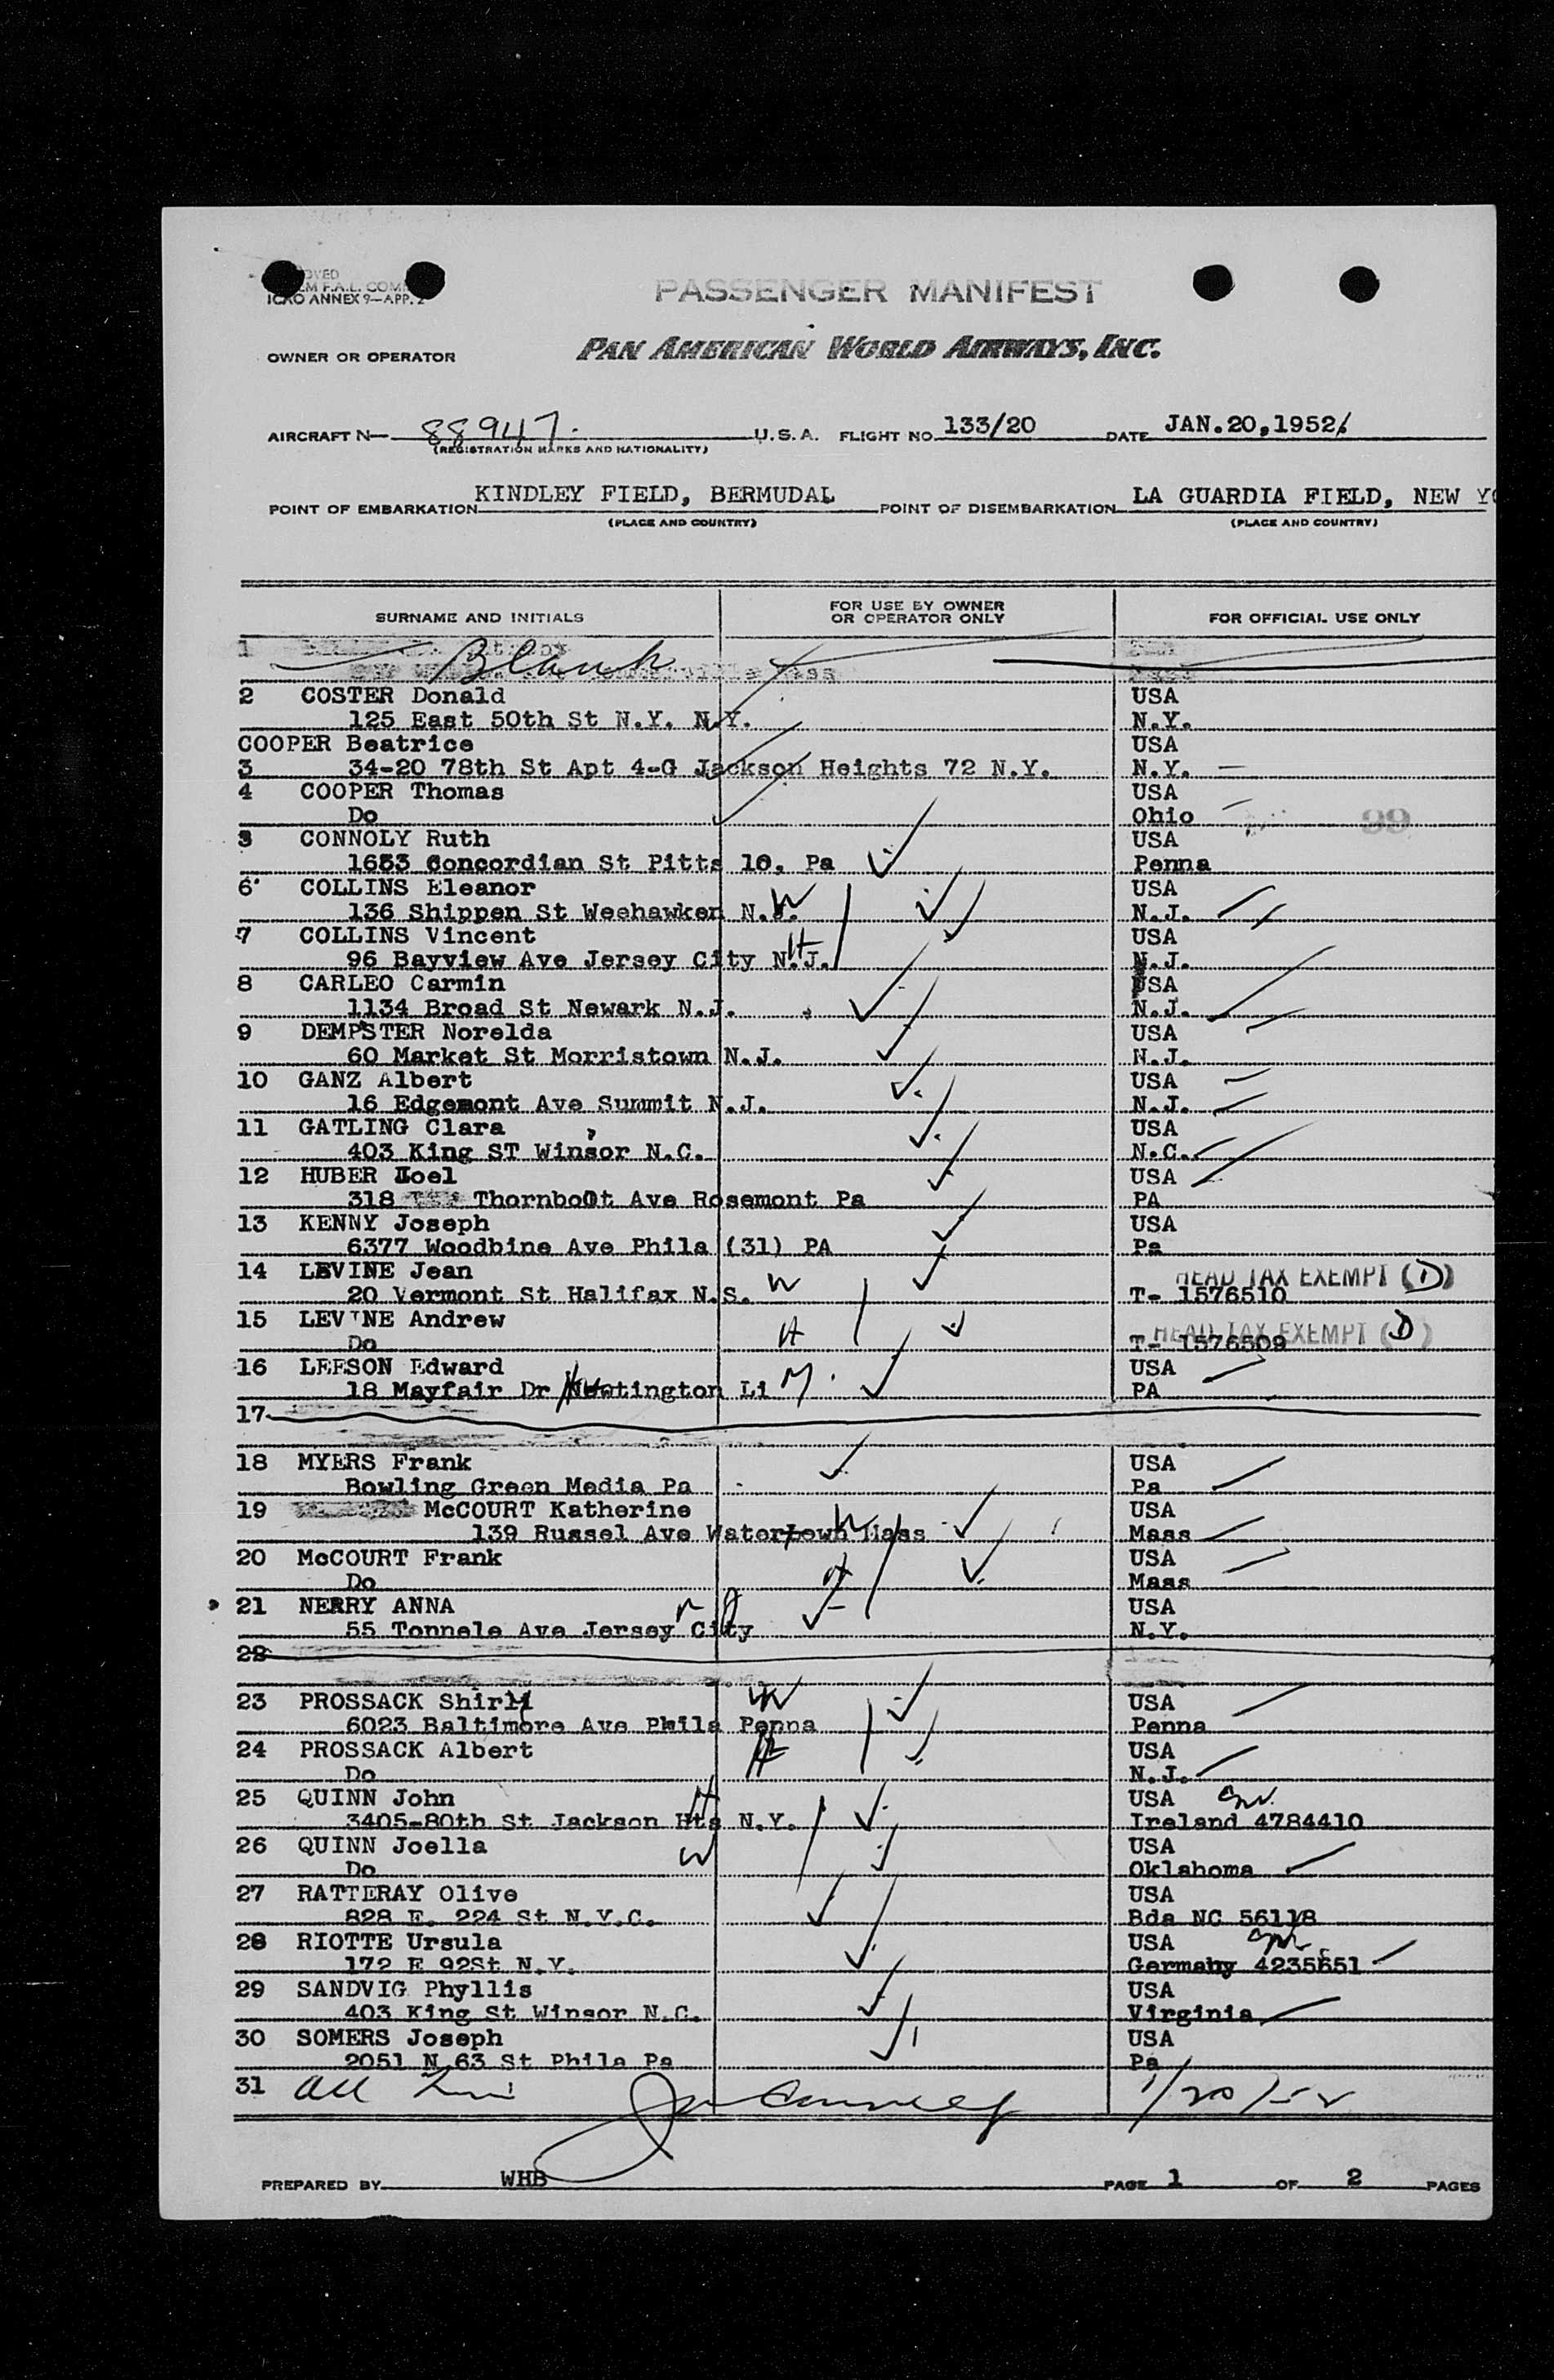 OVED
EM F.A.L. COM
ICAO ANNEX 9—APP. 2
PASSENGER MANIFEST
OWNER OR OPERATOR PAN AMERICAN WORLD AIRWAYS, INC.
AIRCRAFT N— 88947. U.S.A. FLIGHT NO. 133/20 DATE JAN.20,1952
(REGISTRATION MARKS AND NATIONALITY)
POINT OF EMBARKATION KINDLEY FIELD, BERMUDAL POINT OF DISEMBARKATION LA GUARDIA FIELD, NEW YO
(PLACE AND COUNTRY) (PLACE AND COUNTRY)
SURNAME AND INITIALS FOR USE BY OWNER OR OPERATOR ONLY FOR OFFICIAL USE ONLY
1 Blank
2 COSTER Donald USA
125 East 50th St N.Y. N.Y. N.Y.
COOPER Beatrice USA
3 34-20 78th St Apt 4-G Jackson Heights 72 N.Y. N.Y.
4 COOPER Thomas USA
Do Ohio 99
CONNOLY Ruth USA
1653 Concordian St Pitts 10, Pa Penna
6 COLLINS Eleanor USA
136 Shippen St Weehawken N.J. W N.J.
7 COLLINS Vincent USA
96 Bayview Ave Jersey City N.J. H N.J.
8 CARLEO Carmin USA
1134 Broad St Newark N.J. N.J.
9 DEMPSTER Norelda USA
60 Market St Morristown N.J. N.J.
10 GANZ Albert USA
16 Edgemont Ave Summit N.J. N.J.
11 GATLING Clara USA
403 King ST Winsor N.C. N.C.
12 HUBER Joel USA
318 Thornbort Ave Rosemont Pa PA
13 KENNY Joseph USA
6377 Woodbine Ave Phila (31) PA Pa
14 LEVINE Jean HEAD TAX EXEMPT (D)
20 Vermont St Halifax N.S. W T- 1576510
15 LEVINE Andrew HEAD TAX EXEMPT (D)
Do H T- 1576509
16 LEESON Edward USA
18 Mayfair Dr Huntington Li M. PA
17
18 MYERS Frank USA
Bowling Green Media Pa Pa
19 McCOURT Katherine USA
139 Russel Ave Watertown Mass W Mass
20 McCOURT Frank USA
Do H Mass
21 NERRY ANNA USA
55 Tonnele Ave Jersey City N.Y.
22
23 PROSSACK Shirly W USA
6023 Baltimore Ave Phila Penna Penna
24 PROSSACK Albert H USA
Do N.J.
25 QUINN John H USA
3405-80th St Jackson Hts N.Y. Ireland 4784410
26 QUINN Joella W USA
Do Oklahoma
27 RATTERAY Olive USA
828 E. 224 St N.Y.C. Bda NC 56118
28 RIOTTE Ursula USA
172 E 92St N.Y. Germany 4235651
29 SANDVIG Phyllis USA
403 King St Winsor N.C. Virginia
30 SOMERS Joseph USA
2051 N 63 St Phila Pa Pa
31 all 1/20/52
PREPARED BY WHB PAGE 1 OF 2 PAGES